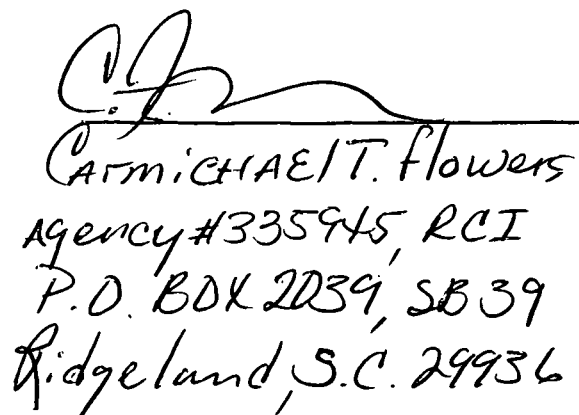 C.F.
CArmiCHAEl T. flowers
Agency #335945, RCI
P.O. BOX 2039, SB 39
Ridgeland, S.C. 29936